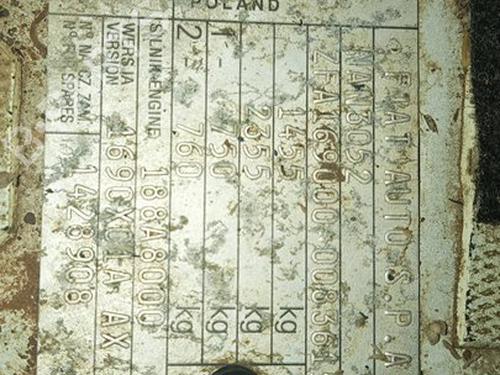 POLAND
FIAT AUTO S.P.A
NAN3052
ZFA169000 008361
1455 kg
2355 kg
1- 750 kg
2- 760 kg
SILNIK-ENGINE 188A8000
WERSJA VERSION 169AXC1A AX
Nº NA CZ. ZAM.
Nº FOR SPARES 1428908